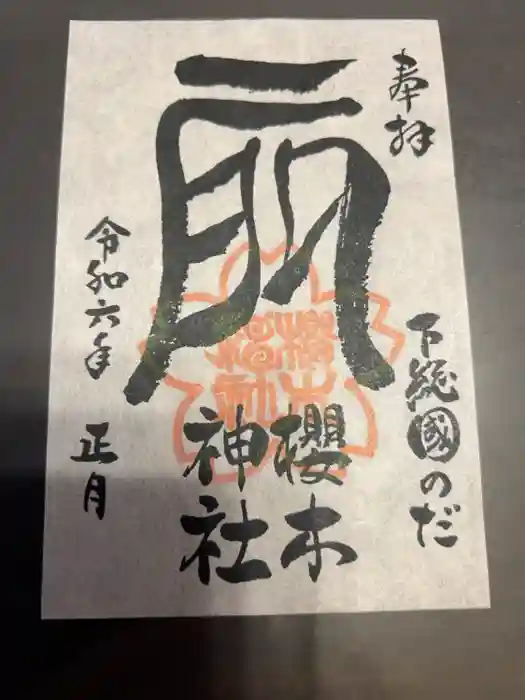 奉拝
下総國のだ
櫻木
神社
令和六年 正月
櫻木
神社